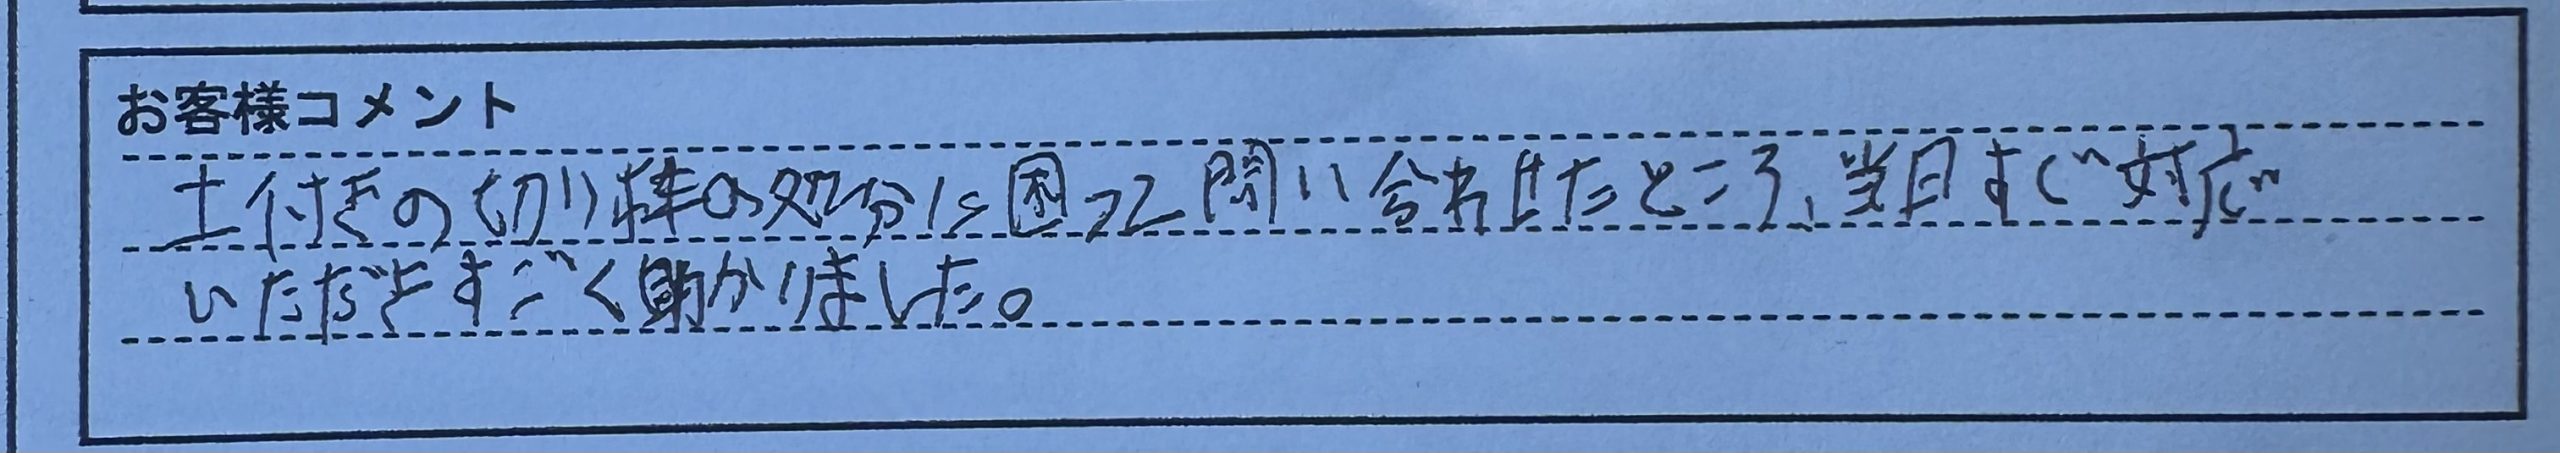 お客様コメント
土付きの切り株の処分に困って問い合わせたところ、当日すぐ対応
いただきすごく助かりました。